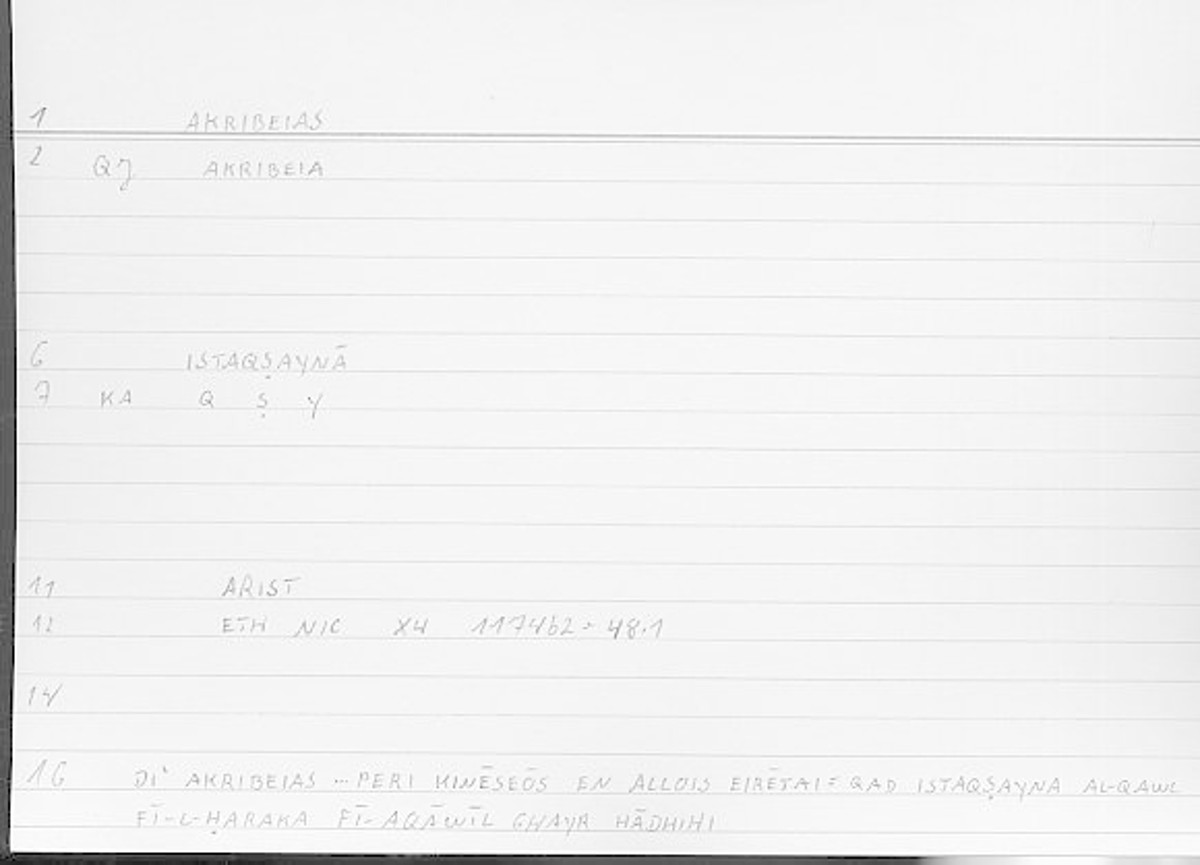 1 AKRIBEIAS
2 QJ AKRIBEIA
6 ISTAQṢAYNĀ
7 KA Q Ṣ Y
11 ARIST
12 ETH NIC X4 1174b2 = 48.1
14
16 DI' AKRIBEIAS ... PERI KINĒSEŌS EN ALLOIS EIRĒTAI = QAD ISTAQṢAYNA AL-QAWL
FĪ-L-ḤARAKA FĪ-AQĀWĪL GHAYR HĀDHIHI